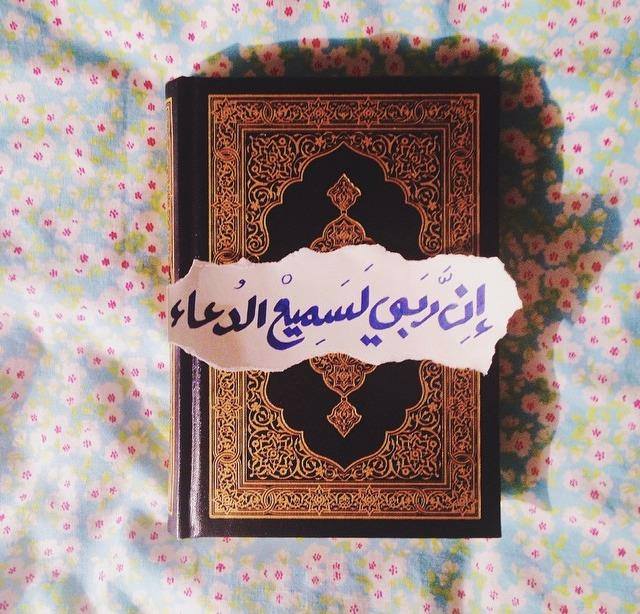 إِنَّ رَبِي لَسَمِيْعُ الدُعاء